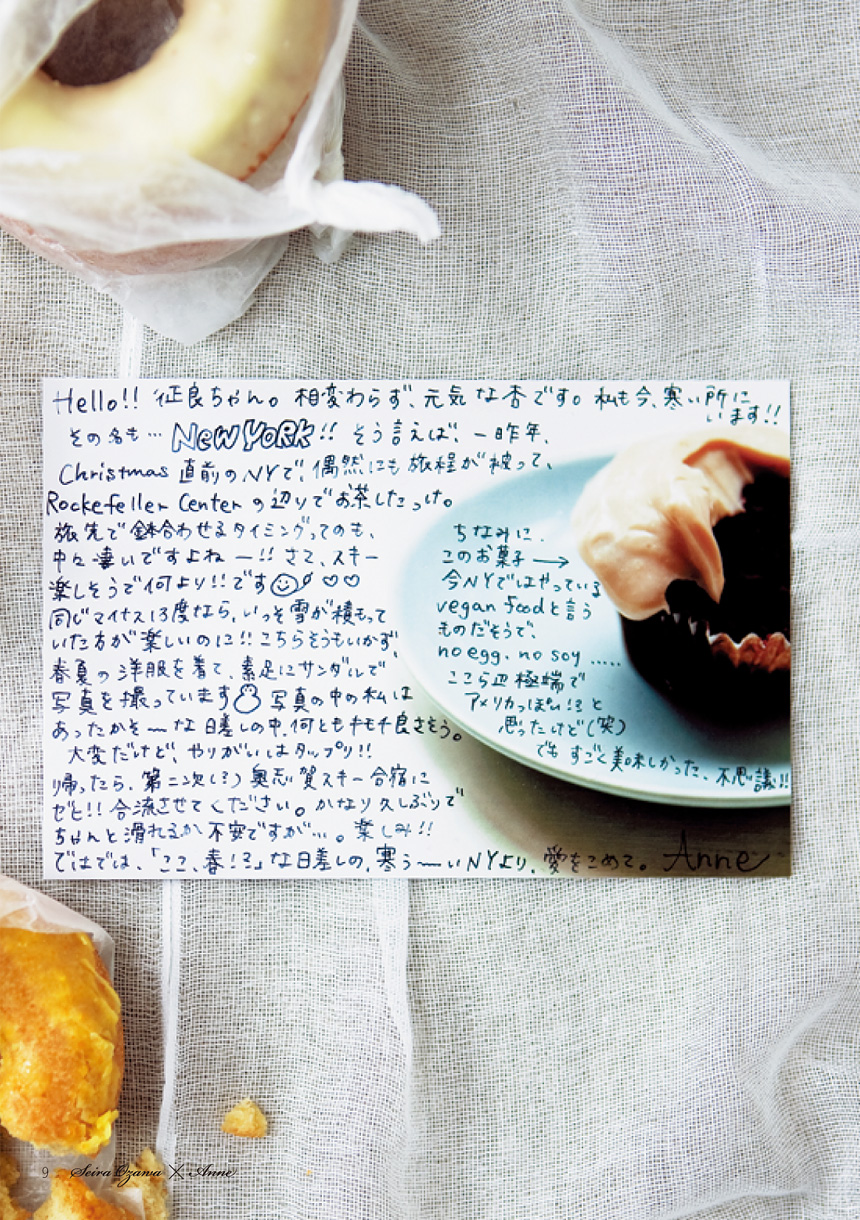 Hello!! 征良ちゃん。相変わらず、元気な杏です。私も今、寒い所に
います!!
その名も… NEW YORK!! そう言えば、一昨年、
Christmas 直前のNYで、偶然にも旅程が被って、
Rockefeller Center の辺りでお茶したっけ。
旅先で鉢合わせるタイミングってのも、
中々凄いですよね ー!! さて、スキー
楽しそうで何より!!です ♡♡
同じマイナス13度なら、いっそ雪が積もって
いた方が楽しいのに!! こちらそうもいかず、
春夏の洋服を着て、素足にサンダルで
写真を撮っています 写真の中の私は
あったかそ〜な日差しの中、何ともキモチ良さそう。
大変だけど、やりがいはタップリ!!
帰ったら、第二次(!?) 奥志賀スキー合宿に
ゼヒ!! 合流させてください。かなり久しぶりで
ちゃんと滑れるか不安ですが…。楽しみ!!
ではでは、「ここ、春!?」な日差しの、寒う〜いNYより、愛をこめて。 Anne
ちなみに、
このお菓子→
今NYではやっている
vegan foodと言う
ものだそうで、
no egg, no soy .....
ここら辺極端で
アメリカっぽい!?と
思ったけど(笑)
でもすごく美味しかった、不思議!!
9 Seira Ozawa × Anne